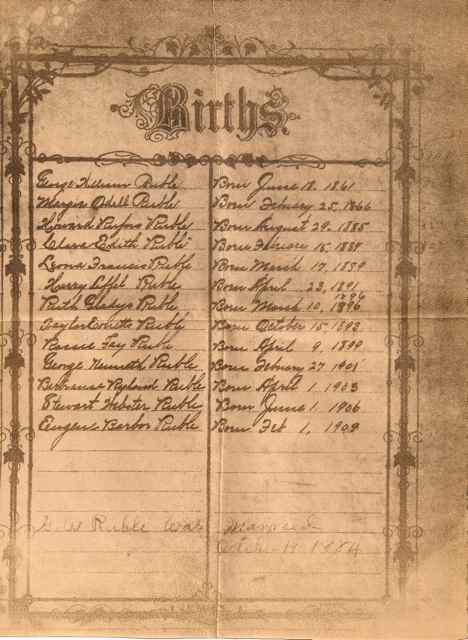 Births.
George Ruble Born June 18. 1861
Margie Odell Ruble Born Febuary 25, 1866
Howard Rufus Ruble Born August 29. 1885
Clara Edith Ruble Born Febuary 15, 1887
Leona Francis Ruble Born March 17, 1889
Harry Eiffel Ruble Born April 23, 1891
1896
Ruth Gladys Ruble Born March 10, 1896
Ruble Born October 15, 1893
Bessie Fay Ruble Born April 9, 1899
George Kenneth Ruble Born Febuary 27 1901
Ruble Born April 1, 1903
Stewart Webster Ruble Born June 1, 1906
Eugene Barbor Ruble Born Feb 1, 1909
G. W Ruble was Married
11 1884